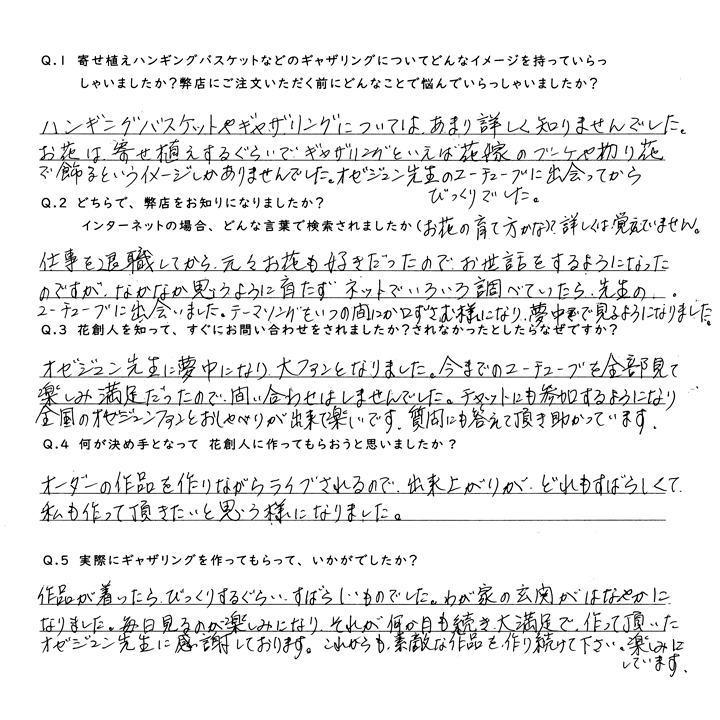 Q.1 寄せ植えハンギングバスケットなどのギャザリングについてどんなイメージを持っていらっ
しゃいましたか?弊店にご注文いただく前にどんなことで悩んでいらっしゃいましたか?
ハンギングバスケットやギャザリングについては、あまり詳しく知りませんでした。
お花は寄せ植えするぐらいで、ギャザリングといえば花嫁のブーケや切り花
で飾るというイメージしかありませんでした。オゼジュン先生のユーチューブに出会ってから
びっくりでした。
Q.2 どちらで、弊店をお知りになりましたか?
インターネットの場合、どんな言葉で検索されましたか(お花の育て方かな)?詳しくは覚えていません。
仕事を退職してから、元々お花も好きだったので、お世話をするようになった
のですが、なかなか思うように育たず ネットでいろいろ調べていたら、先生の
ユーチューブに出会いました。テーマソングをいつの間にか口ずさむ様になり、夢中で見るようになりました。
Q.3 花創人を知って、すぐにお問い合わせをされましたか?されなかったとしたらなぜですか?
オゼジュン先生に夢中になり、大ファンとなりました。今までのユーチューブを全部見て
楽しみ満足だったので、問い合わせはしませんでした。チャットにも参加するようになり
全国のオゼジュンファンとおしゃべりが出来て楽しいです。質問にも答えて頂き助かっています。
Q.4 何が決め手となって 花創人に作ってもらおうと思いましたか?
オーダーの作品を作りながらライブされるので、出来上がりが、どれもすばらしくて、
私も作って頂きたいと思う様になりました。
Q.5 実際にギャザリングを作ってもらって、いかがでしたか?
作品が着ったら、びっくりするぐらい、すばらしいものでした。わが家の玄関がはなやかに
なりました。毎日見るのが楽しみになり、それが何か月も続き、大満足で、作って頂いた
オゼジュン先生に感謝しております。これからも、素敵な作品を作り続けて下さい。楽しみに
しています。